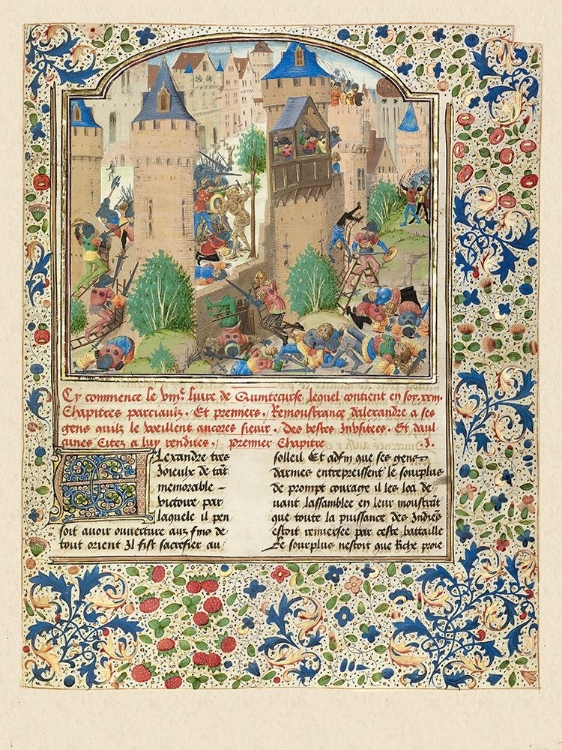 Cy commence le viiiᵉ livre de Quintecurse lequel contient en soy xxiii
Chapitres parciaulx. Et premiers. Remoustrance dAlexandre a ses
gens quilz le veillent ancores sievir. Des bestes Indsices. Et daul
cunes Citez a luy rendues. premier Chapitre .I.
Alexandre tres
Joieux de tāt
memorable -
victoire par
laquele il pen
soit avoir ouverture aux fins de
tout orient Il fist sacrefier au
solleil Et adfin que ses gens-
darmes entrepreissent le sourplus
de prompt courage il les loa de
vant lassamblee en leur moustrāt
que toute la puissance des Indies
estoit renversee par ceste bataille
Le sourplus nestoit que Riche proie